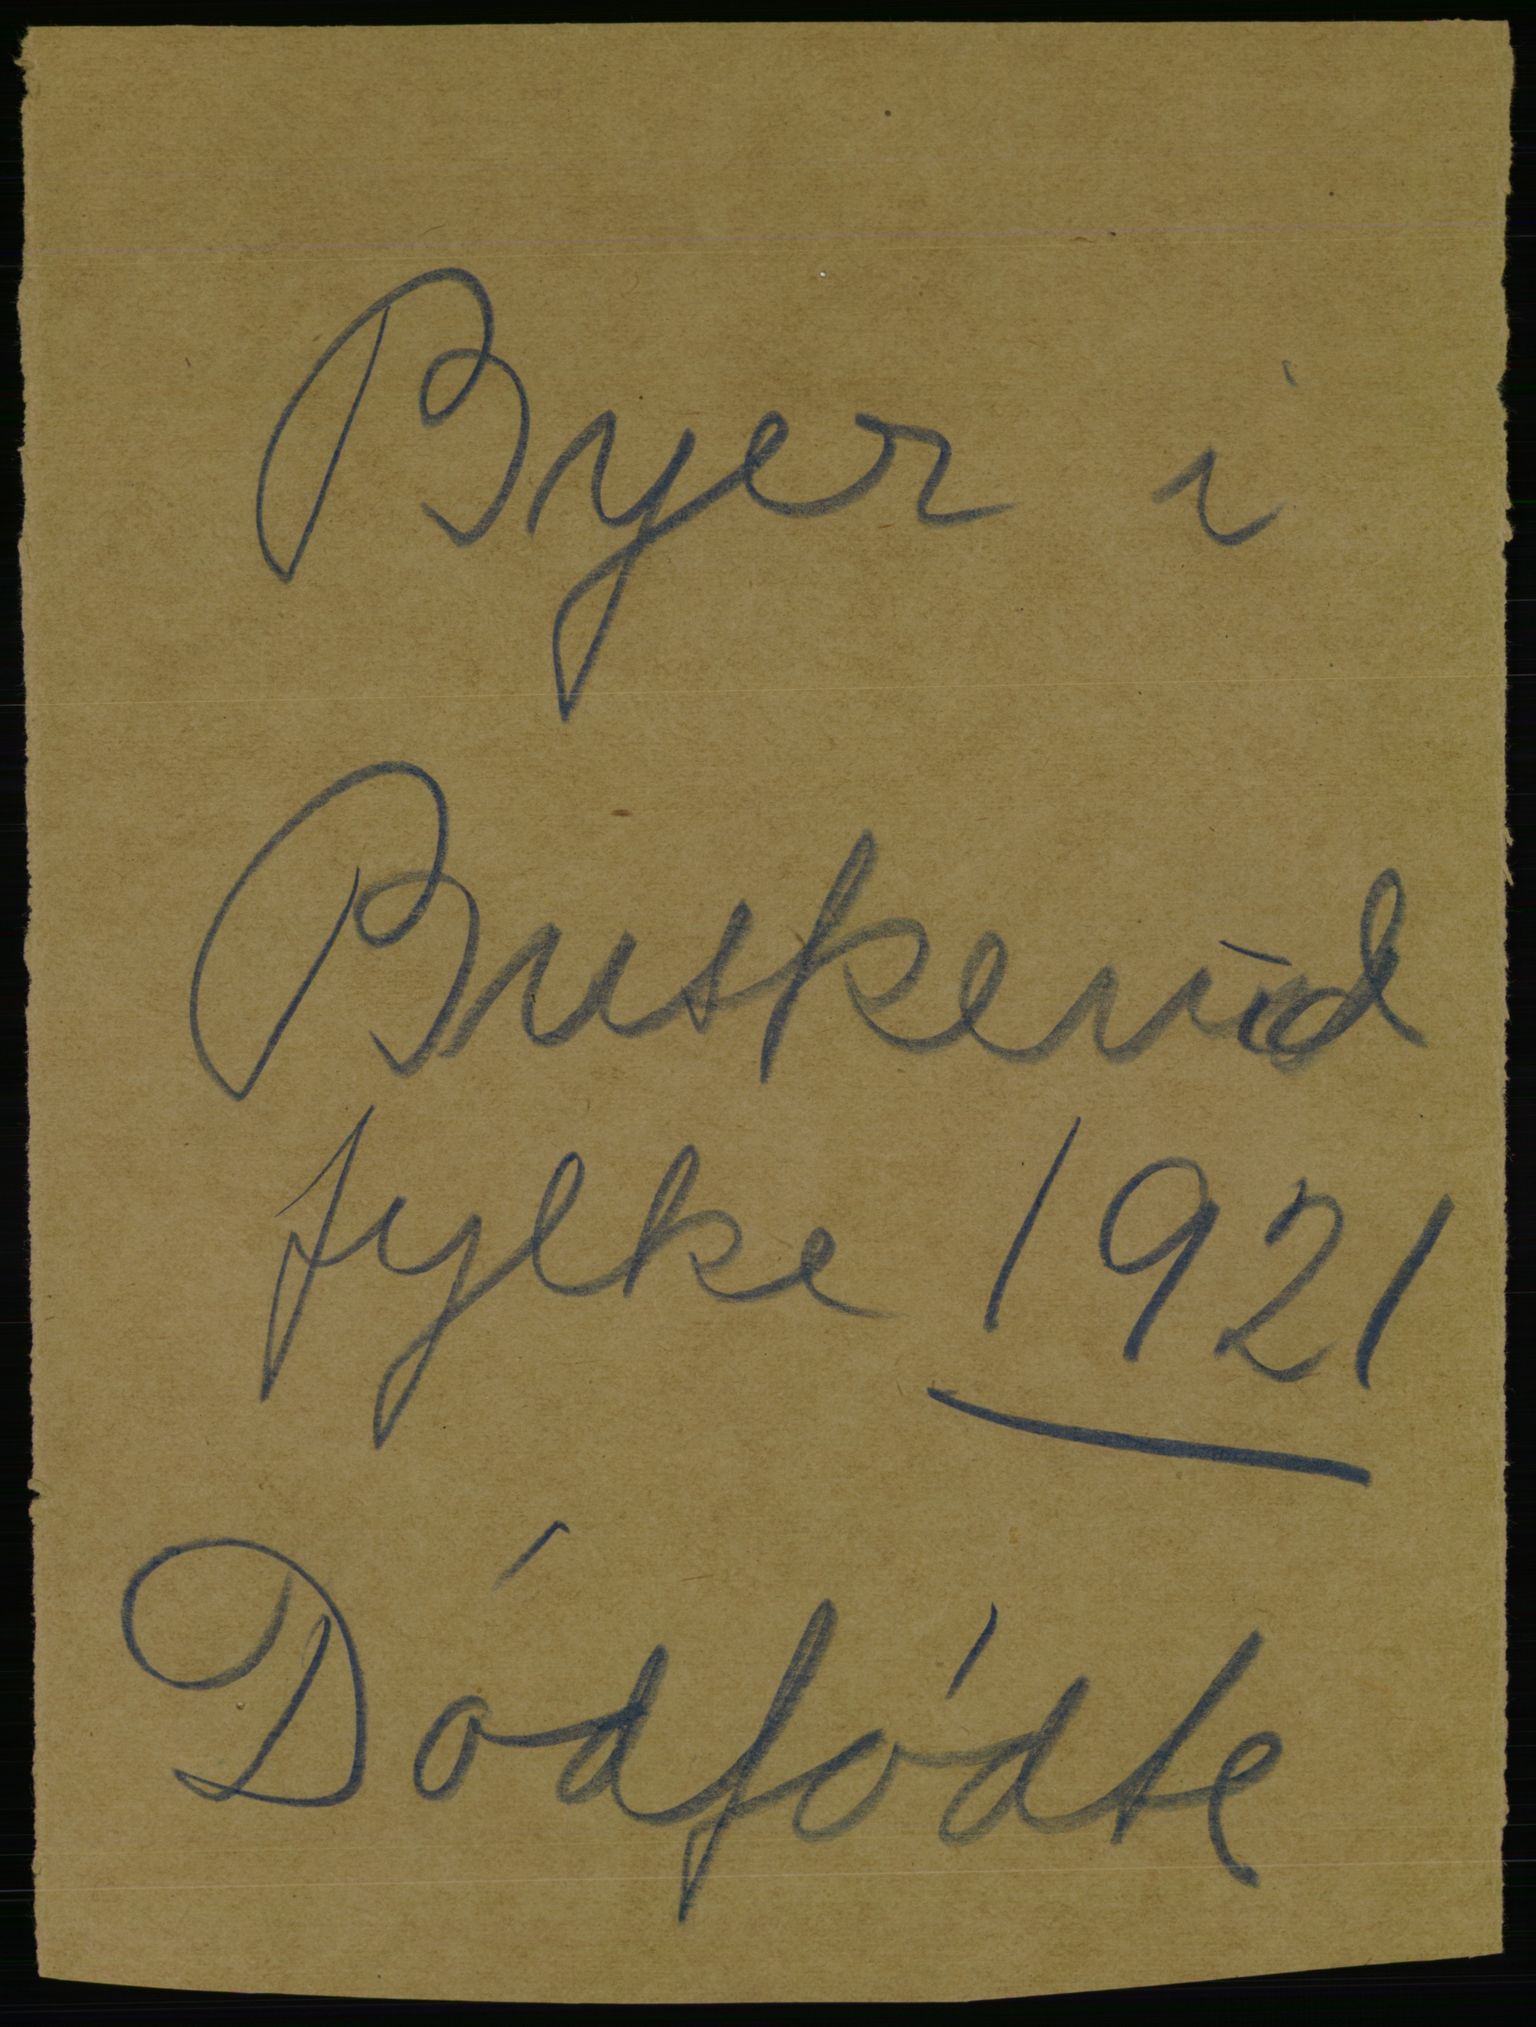 Byer i
Buskerud
fylke 1921
Dódfódte